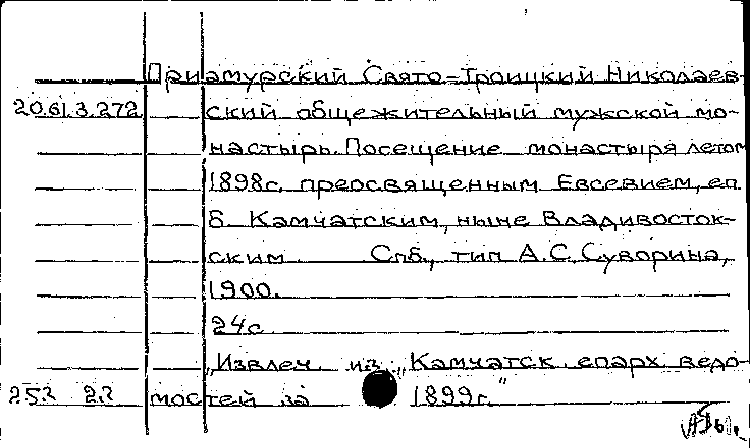 Приамурский Свято-Троицкий Николаев-
20.61.3.272 ский общежительный мужской мо-
настырь. Посещение монастыря летом
1898г. преосвященным Евсевием, еп.
б. Камчатским, ныне Владивосток-
ским Спб., тип. А.С. Суворина,
1900.
24с.
"Извлеч. из "Камчатск. епарх. ведо-
253 22 мостей за 1899г."